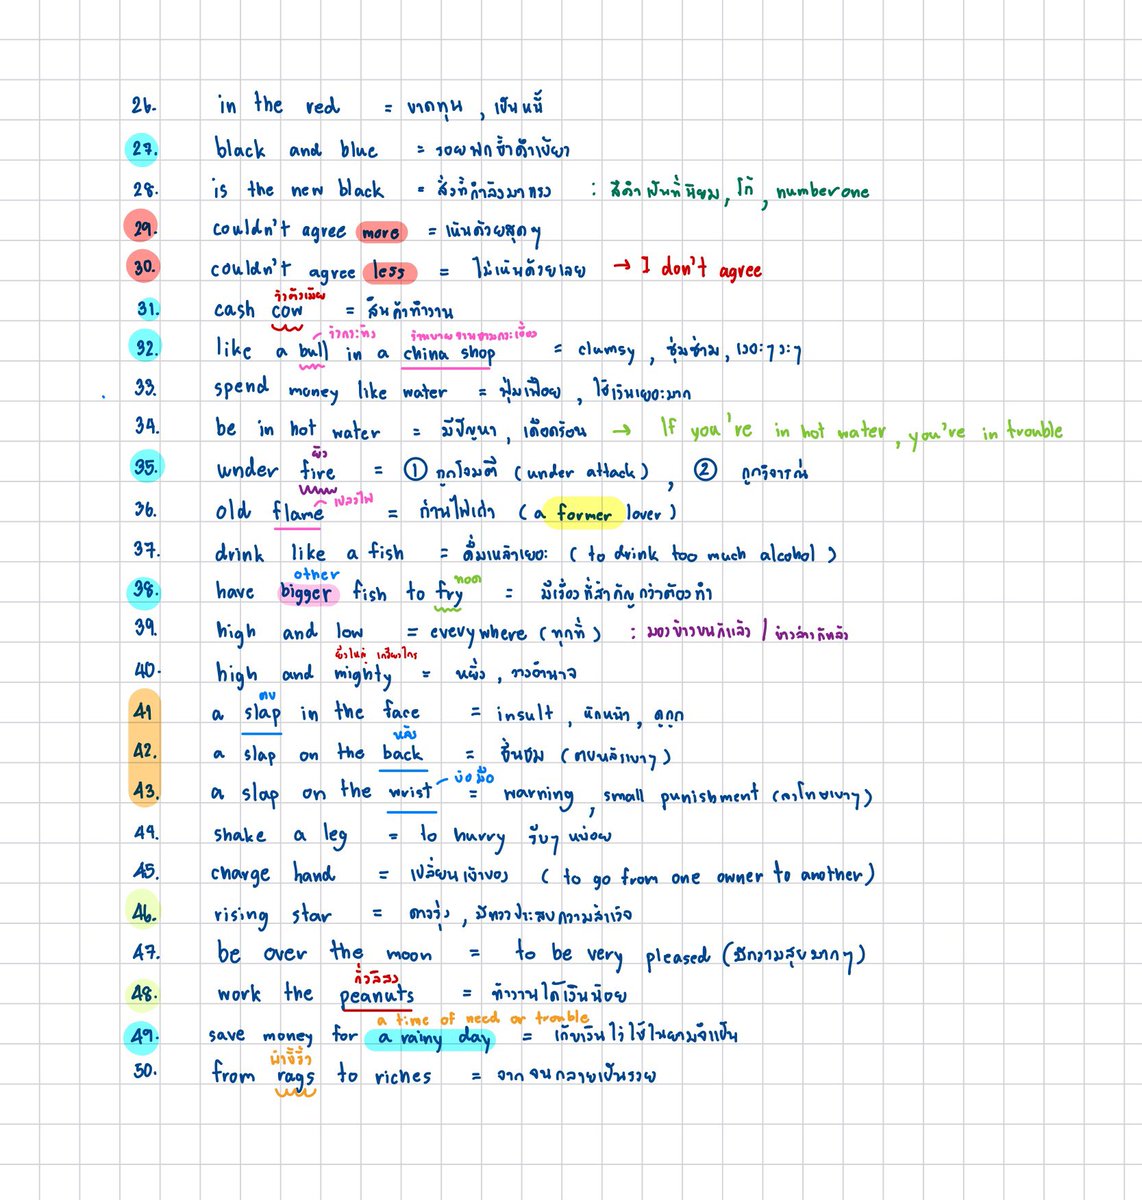 26. in the red = ขาดทุน , เป็นหนี้
27. black and blue = รอยฟกช้ำดำเขียว
28. is the new black = สิ่งที่กำลังมาแรง : สีดำเป็นที่นิยม, โก้, number one
29. couldn't agree more = เห็นด้วยสุดๆ
30. couldn't agree less = ไม่เห็นด้วยเลย → I don't agree
วัวตัวเมีย
31. cash cow = สินค้าทำงาน
วัวกระทิง ร้านขายจานชามกระเบื้อง
32. like a bull in a china shop = clumsy , ซุ่มซ่าม , เงอะๆงะๆ
33. spend money like water = ฟุ่มเฟือย , ใช้เงินเยอะมาก
34. be in hot water = มีปัญหา , เดือดร้อน → If you're in hot water, you're in trouble
ยิง
35. under fire = ① ถูกโจมตี (under attack) , ② ถูกวิจารณ์
เปลวไฟ
36. old flame = ถ่านไฟเก่า (a former lover)
37. drink like a fish = ดื่มเหล้าเยอะ (to drink too much alcohol)
other ทอด
38. have bigger fish to fry = มีเรื่องที่สำคัญกว่าต้องทำ
39. high and low = everywhere (ทุกที่) : มองข้างบนก็แล้ว / ข้างล่างก็แล้ว
ยิ่งใหญ่ เกรียงไกร
40. high and mighty = หยิ่ง , วางอำนาจ
ตบ
41 a slap in the face = insult , หักหน้า , ดูถูก
หลัง
42. a slap on the back = ชื่นชม (ตบหลังเบาๆ)
ข้อมือ
43. a slap on the wrist = warning , small punishment (ลงโทษเบาๆ)
44. shake a leg = to hurry รีบๆ หน่อย
45. change hand = เปลี่ยนเจ้าของ (to go from one owner to another)
46. rising star = ดาวรุ่ง , มีแววประสบความสำเร็จ
47. be over the moon = to be very pleased (มีความสุขมากๆ)
ถั่วลิสง
48. work the peanuts = ทำงานได้เงินน้อย
a time of need or trouble
49. save money for a rainy day = เก็บเงินไว้ใช้ในยามจำเป็น
ผ้าขี้ริ้ว
50. from rags to riches = จากจนกลายเป็นรวย